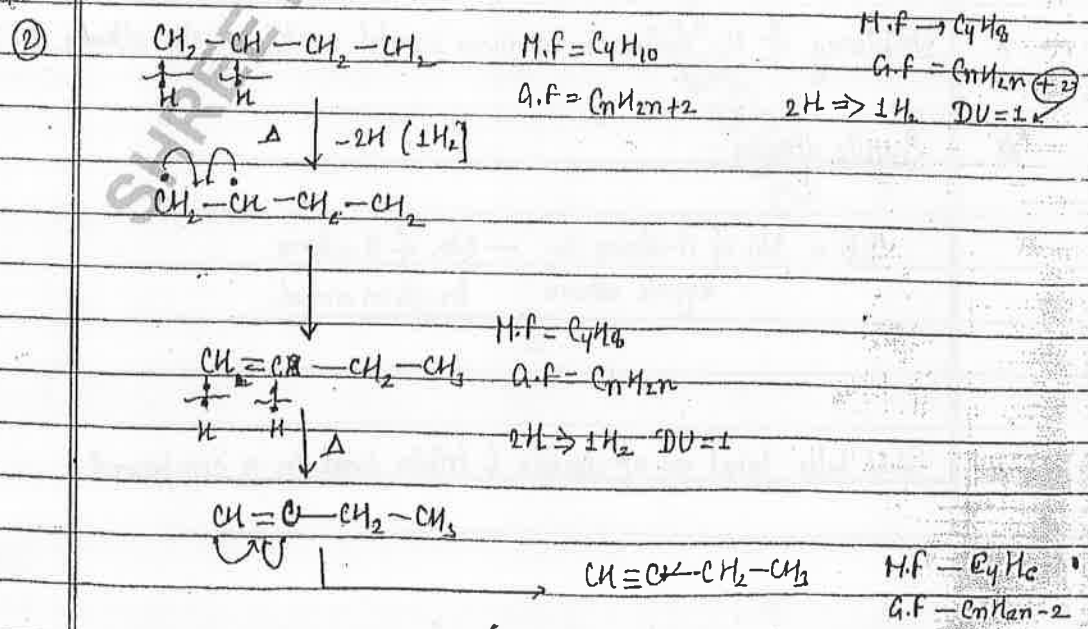 ② CH2 - CH - CH2 - CH2 M.f = C4H10 M.f → C4H8
H H G.f = CnH2n+2 G.f = CnH2n +2
2H ⇒ 1H2 DU=1
Δ -2H (1H2]
CH2 - CH - CH2 - CH2
M.f = C4H8
CH2 = CH - CH2 - CH3 G.f = CnH2n
H H Δ 2H ⇒ 1H2 DU=1
CH = C - CH2 - CH3
CH ≡ C - CH2 - CH3 M.f - C4H6
G.f - CnH2n-2